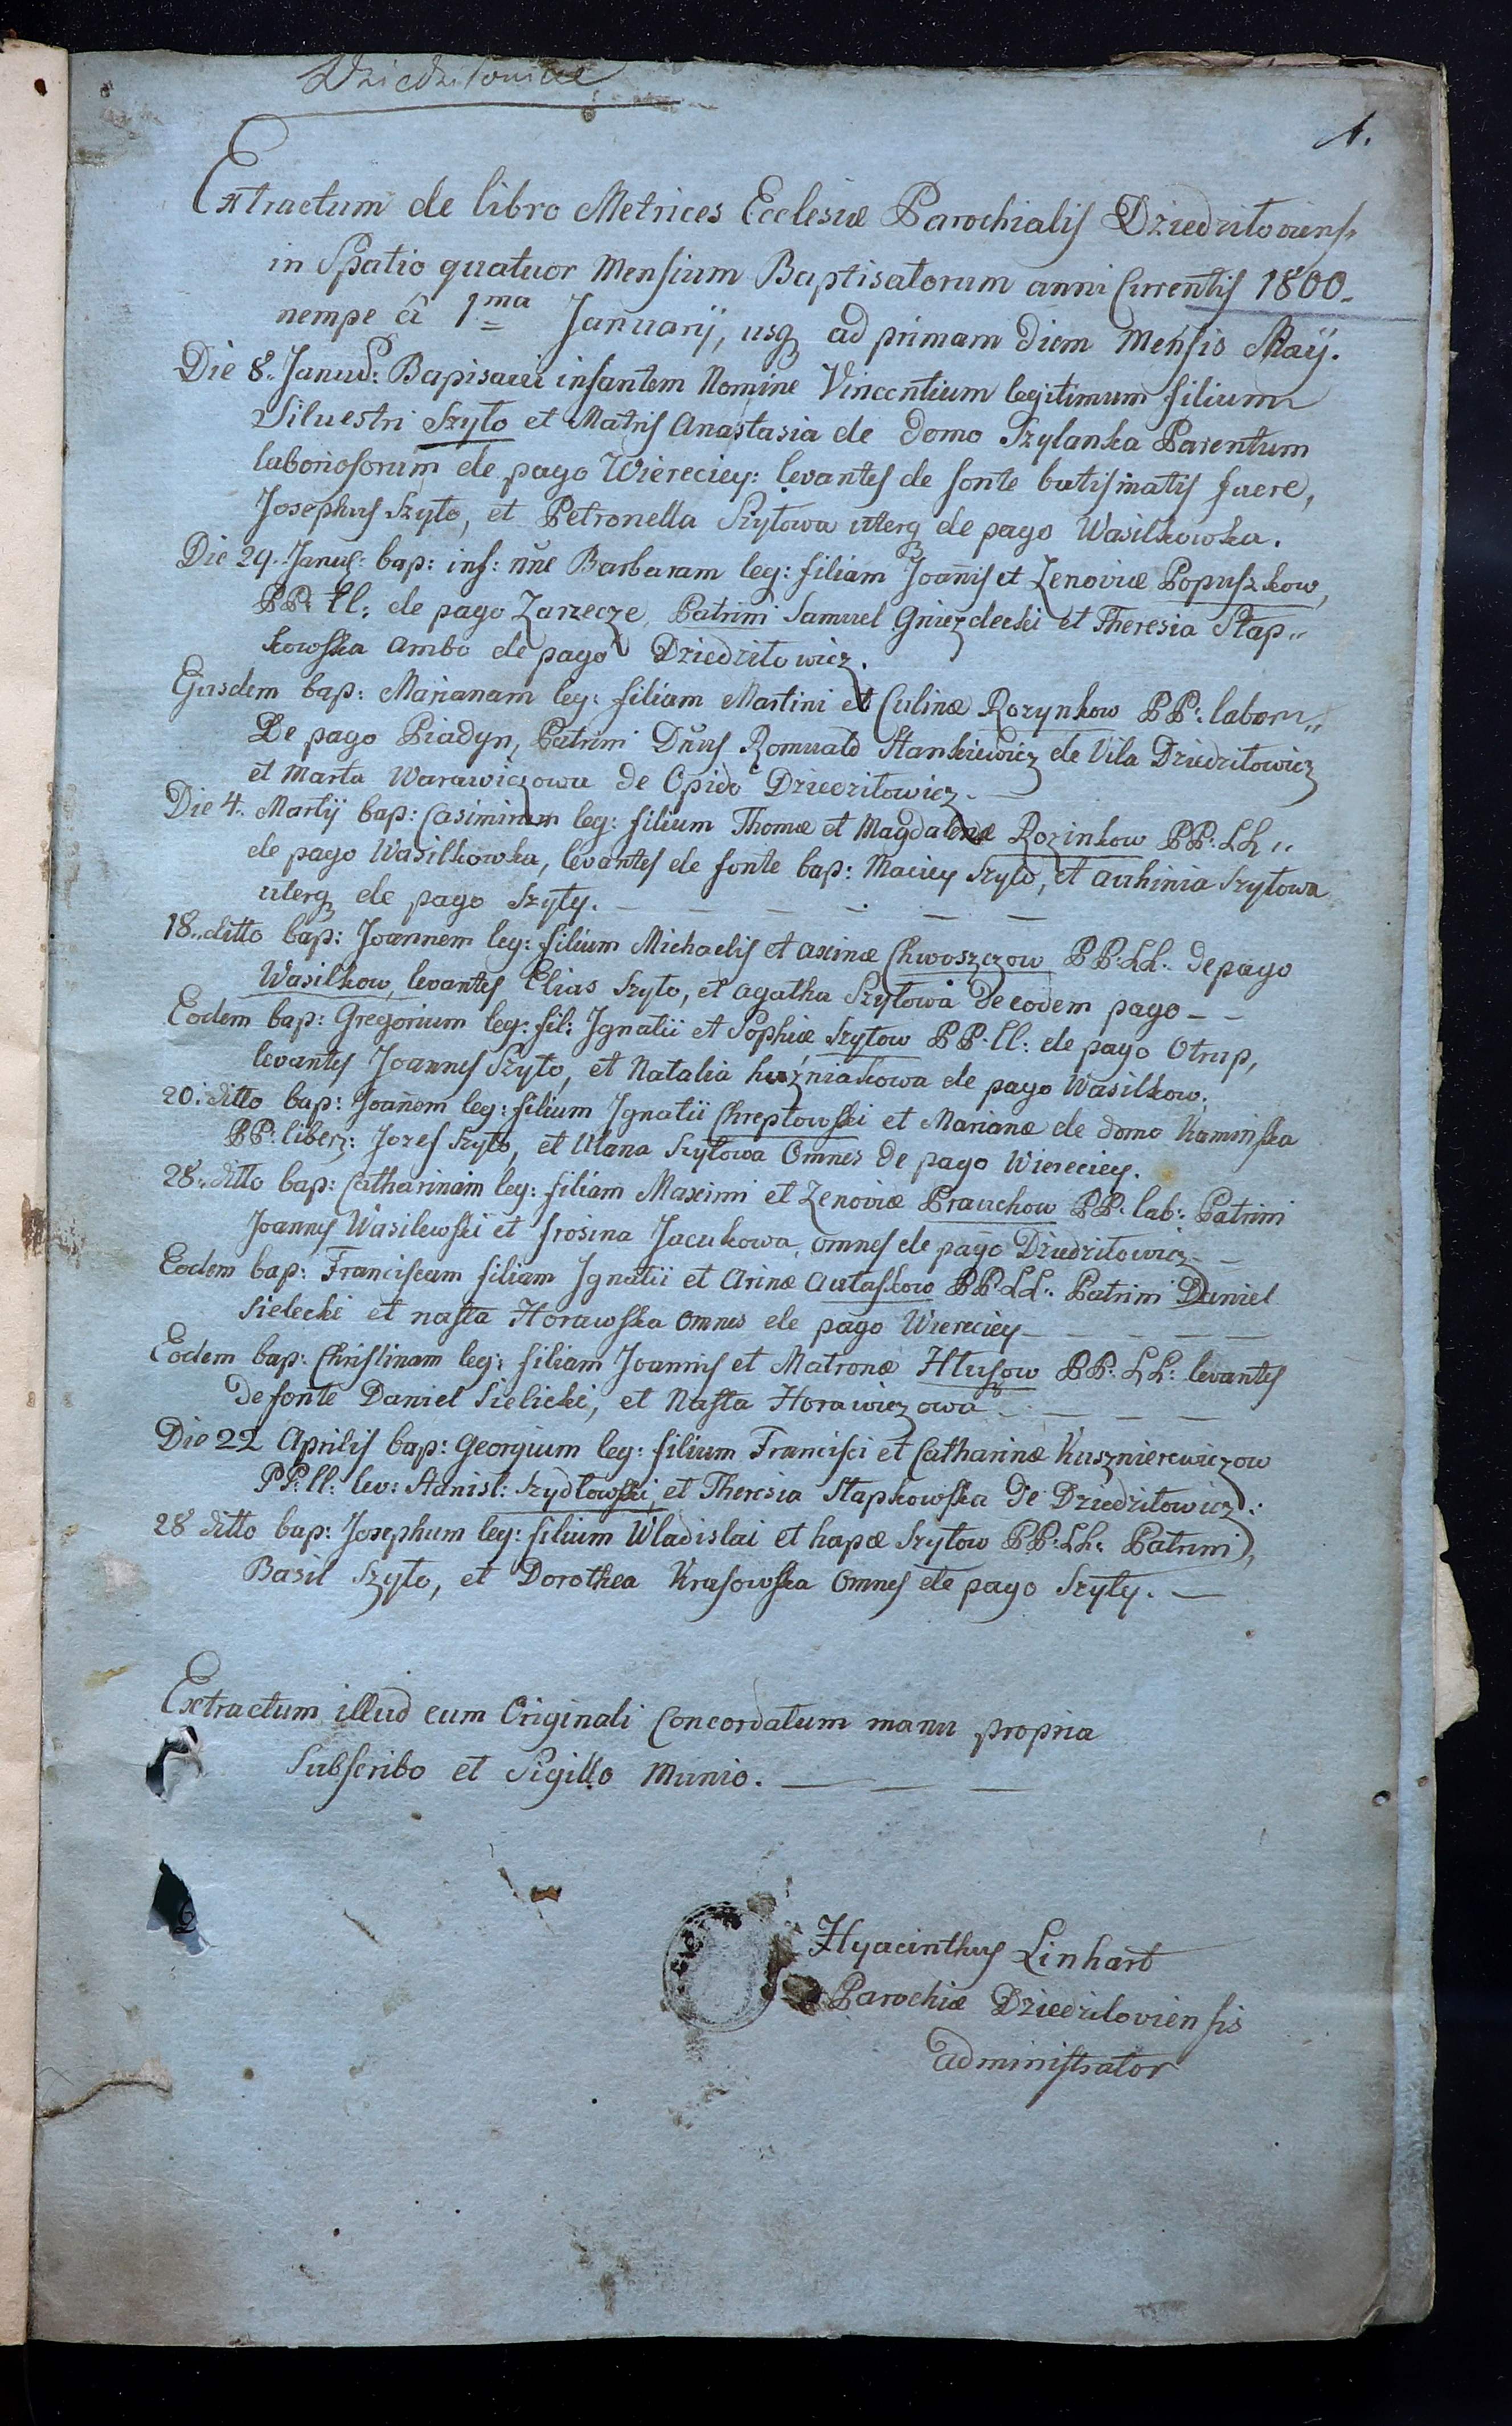 Dziedziłowicze
1.
Extractum de libro Metrices Ecclesiæ Parochialis Dziedziłoviens:
in Spatio quatuor Mensium Baptisatorum anni Currentis 1800.
nempe â 1ma Januarij, usq ad primam diem Mensis Maÿ.
Die 8. Januar: Bapisavi infantem Nomine Vincentium legitimum filium
Siluestri Szyło et Matris Anastasia de domo Szylanka Parentum
laboriosorum de pago Wiereciey: levantes de fonte batismatis fuere,
Josephus Szyło, et Petronella Szyłowa uterq de pago Wasilkowka.
Die 29. Janu: bap: inf: nne Barbaram leg: filiam Joañis et Zenoviæ Popuszkow,
PP: ll: de pago Zarzecze, Patrini Samuel Gniezdecki et Theresia Słap„
kowska Ambo de pago Dziedziłowicz.
Ejusdem bap: Marianam leg: filiam Martini et Culinæ Rozynkow PP: labori„
De pago Piadyn, Patrini Dnus Romuald Stankiewicz de Vila Dziedziłowicz
et Marta Warawiczowa de Opido Dziedziłowicz.
Die 4. Martij bap: Casimirum leg: filium Thomæ et Magdalenæ Rozinkow PP: LL„
de pago Wasilkowka, levantes de fonte bap: Maciey Szyło, et Auhinia Szyłowa
uterq de pago Szyły.
18„ ditto bap: Joannem leg: filium Michaelis et Axinæ Chwoszczow PP: LL: de pago
Wasilkow, levantes Elias Szyło, et Agatha Szyłowa De eodem pago
Eodem bap: Gregorium leg: fil: Ignatii et Sophiæ Szyłow PP: ll: de pago Otrup,
levantes Joannes Szyło, et Natalia huźniakowa de pago Wasilkow.
20: ditto bap: Joañem leg: filium Ignatii Chreptowski et Marianæ de domo Kaminska
PP: liber: Jozef Szyło, et Ulana Szyłowa Omnes De pago Wiereciey.
28„ ditto bap: Catharinam leg: filiam Maximi et Zenoviæ Prauchow PP: lab: Patrini
Joannes Wasilewski et frosina Jacukowa, omnes de pago Dziedziłowicz
Eodem bap: Franciscam filiam Ignatii et Arinæ Autaskow PP: LL: Patrini Daniel
Sielecki et nasta Horawska Omnes de pago Wiereciey
Eodem bap: Christinam leg: filiam Joannis et Matronæ Htusow PP: LL: levantes
De fonte Daniel Sielicki, et Nasta Horawiczowa
Die 22 Aprilis bap: Georgium leg: filium Francisci et Catharinæ Kusznierewiczow
PP: ll: lev: Stanisl: Szydłowski, et Theresia Słapkowska De Dziedziłowicz:
28 ditto bap: Josephum leg: filium Wladislai et hapæ Szyłow PP: LL: Patrini,
Basil Szyło, et Dorothea Krasowska Omnes de pago Szyły.
Extractum illud cum Originali Concordatum manu propria
Subscribo et Sigillo Munio.
Hyacinthus Linhart
Parochiæ Dziedziloviensis
administrator